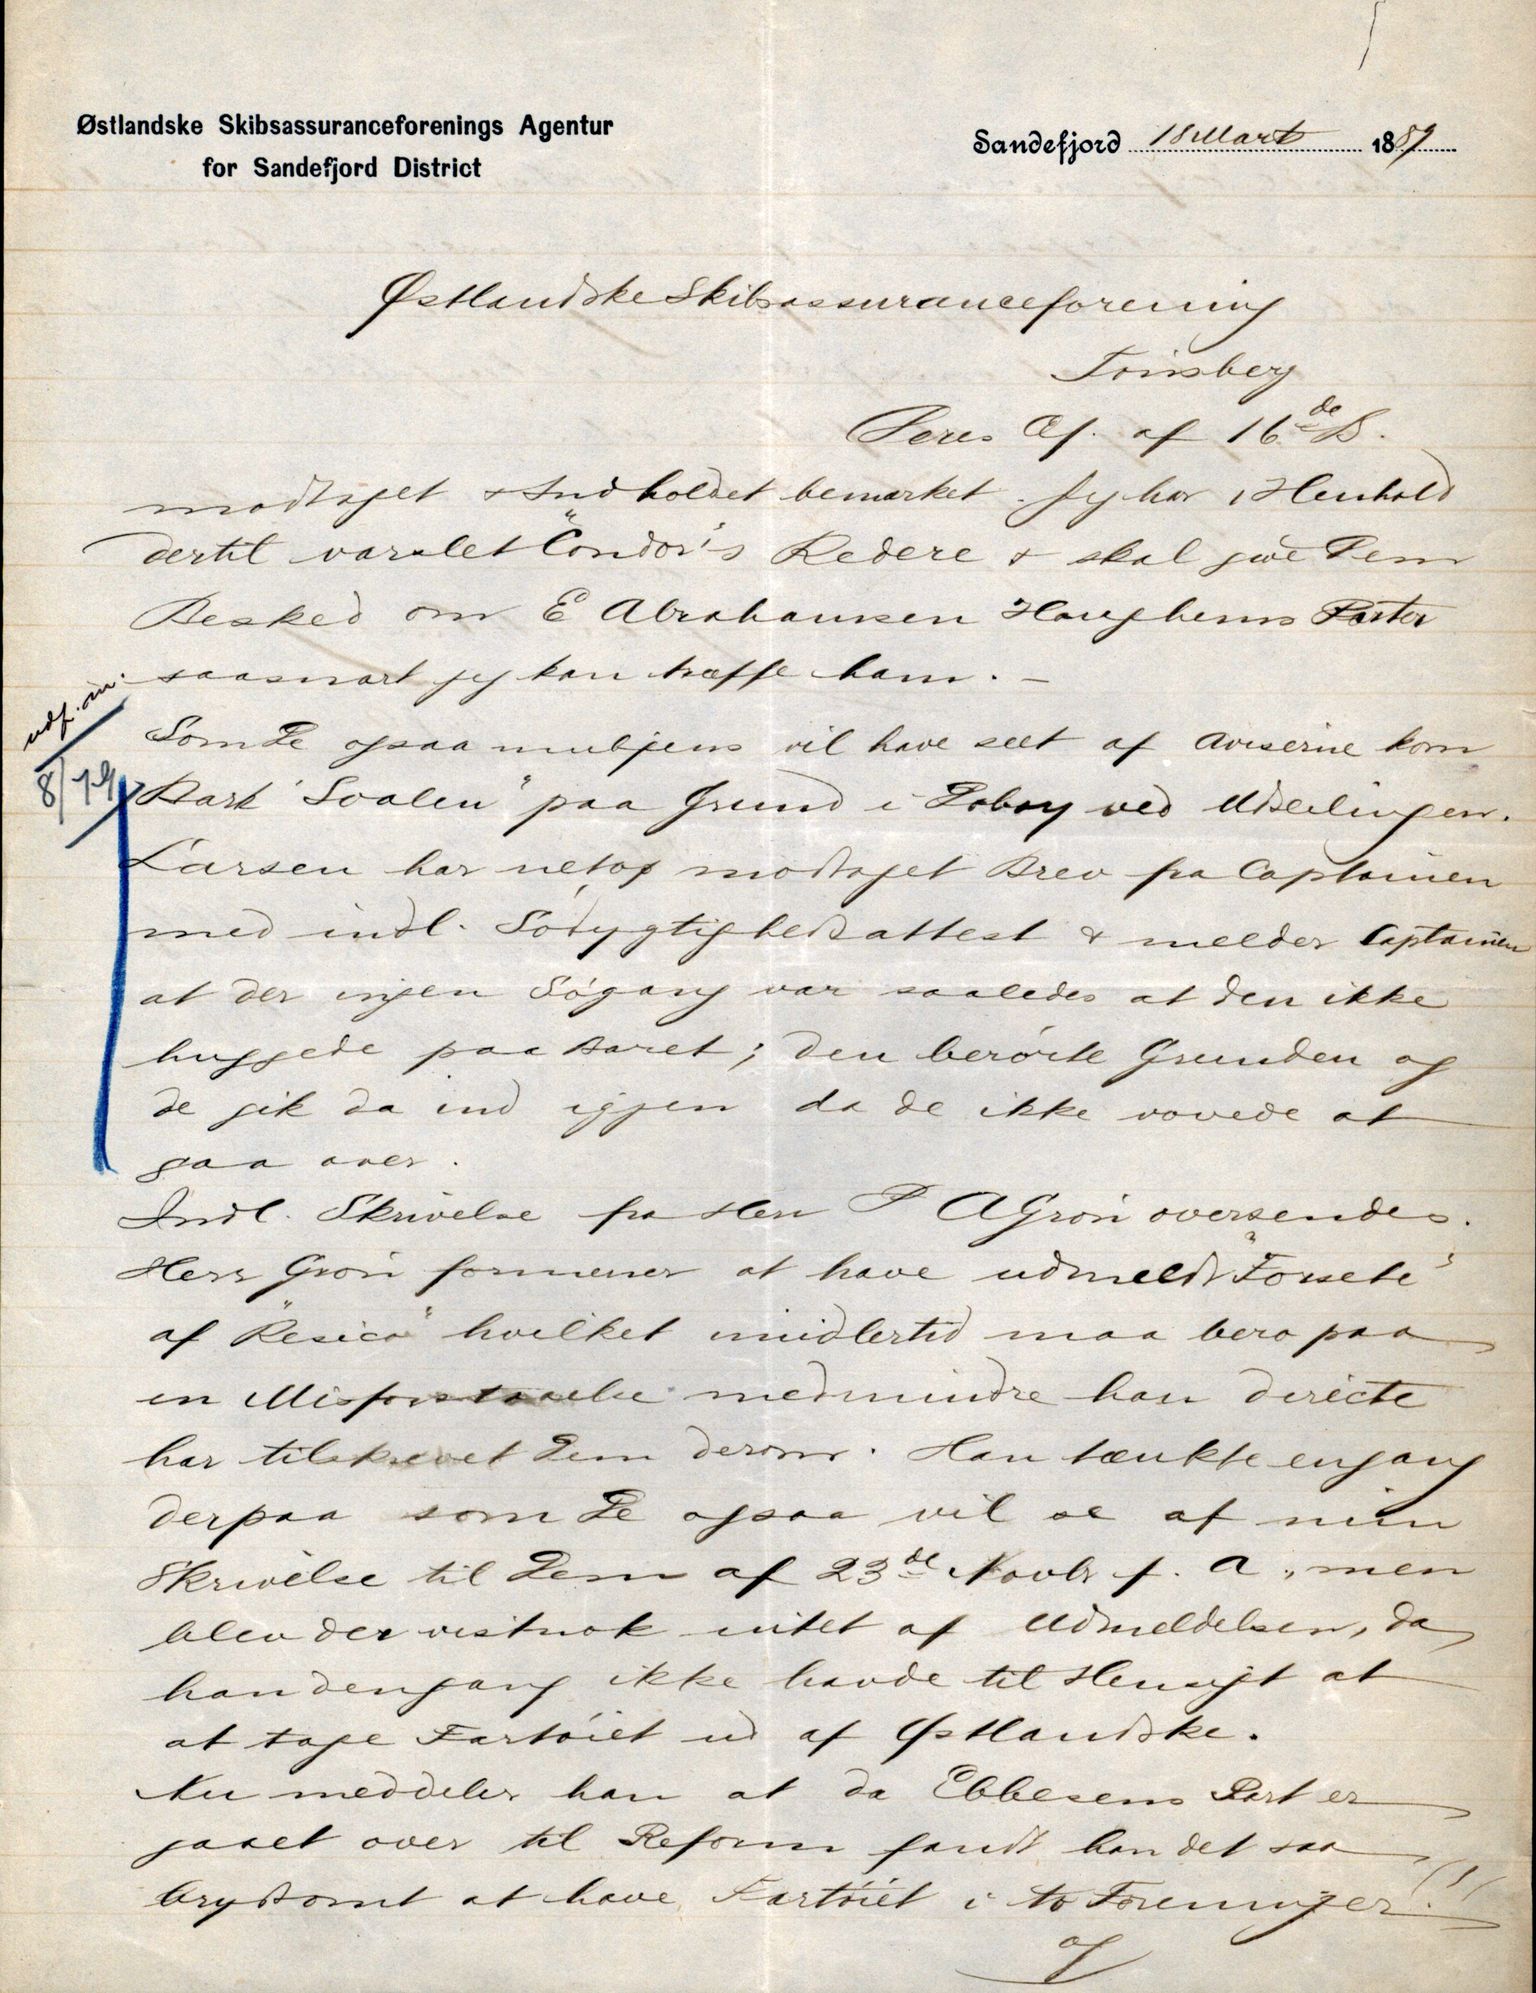 Østlandske Skibsassuranceforenings Agentur
for Sandefjord District
Sandefjord 18 Marts 1889
Østlandske Skibsassuranceforening
Tönsberg
Deres Æf. af 16de Ds.
modtaget & Indholdet bemærket. Jeg har i Henhold
dertil varslet "Condor's Redere & skal give Dem
Besked om E Abrahamsen Haughems Parter
saasnart jeg kan træffe ham. -
udf. 
8/79
Som De ogsaa muligens vil have seet af Aviserne kom
Bark "Svalen" paa Grund i Doboy ved Udseilingen.
Larsen har netop modtaget Brev fra Captainen
med indl. Södygtighedsattest & melder Captainen
at der ingen Sögang var saaledes at den ikke
huggede paa Baret; den berörte Grunden og
de gik da ind igjen da de ikke vovede at
gaa over.
Indl. Skrivelse fra Herr P A Grön oversendes.
Herr Grön formener at have udmeldt "Forsete"
af "Resico" hvilket imidlertid maa bero paa
en Misforstaaelse medmindre han directe
har tilskrevet Dem derom. Han tænkte engang
derpaa som De ogsaa vil se af min
Skrivelse til Dem af 23de Novbr f. A., men
blev der vistnok intet af Udmeldelsen, da
han dengang ikke havde til Hensigt at
at tage Fartöiet ud af Østlandske.
Nu meddeler han at da Ebbesens Part er
gaaet over til Reform fandt han det saa
brydsomt at have Fartöiet i to Foreninger (!)
og